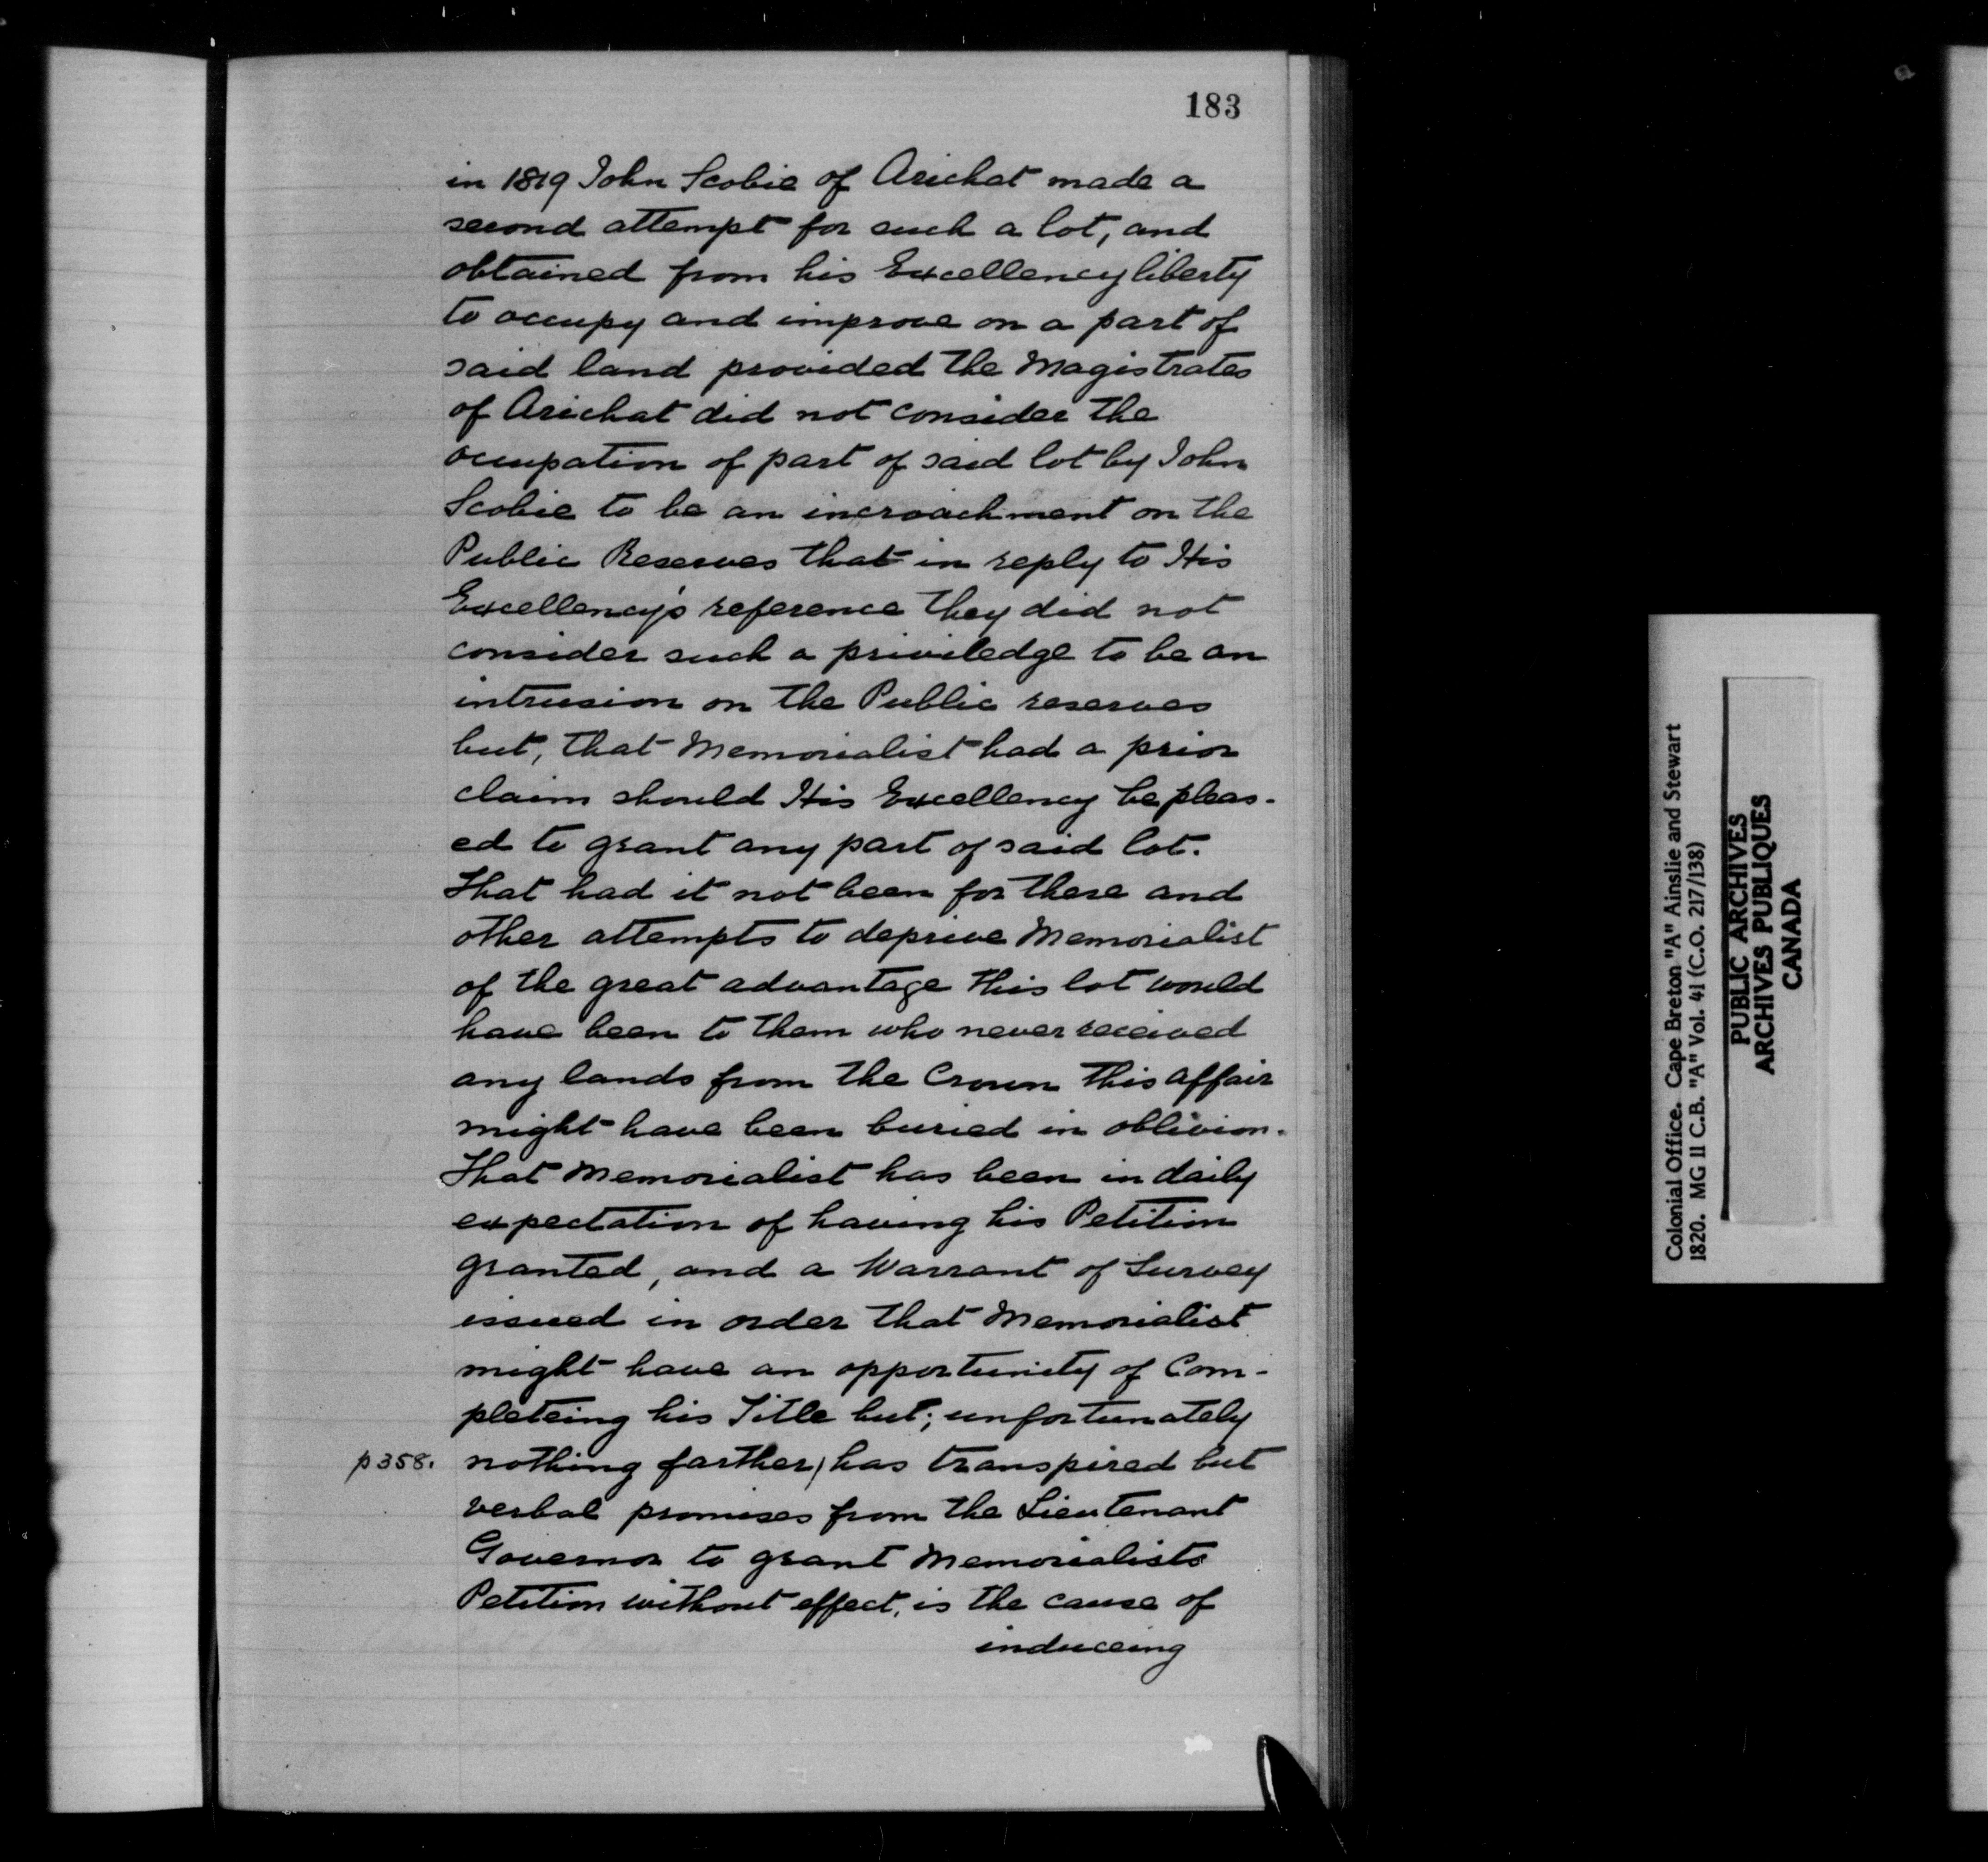 183
in 1819 John Scobie of Arichat made a
second attempt for such a lot, and
obtained from his Excellency liberty
to occupy and improve on a part of
said land provided the Magistrates
of Arichat did not consider the
occupation of part of said lot by John
Scobie to be an incroachment on the
Public Reserves that in reply to His
Excellency's reference they did not
consider such a priviledge to be an
intrusion on the Public reserves
but, that Memorialist had a prior
claim should His Excellency be pleas-
ed to grant any part of said lot.
That had it not been for these and
other attempts to deprive Memorialist
of the great advantage this lot would
have been to them who never received
any lands from the Crown this affair
might have been buried in oblivion.
That Memorialist has been in daily
expectation of having his Petition
granted, and a Warrant of Survey
issued in order that Memorialist
might have an opportunity of Com-
pleteing his Title but; unfortunately
p358. nothing farther) has transpired but
verbal promises from the Lieutenant
Governor to grant Memorialists
Petition without effect, is the cause of
induceing
Colonial Office. Cape Breton "A" Ainslie and Stewart
1820. MG 11 C.B. "A" Vol. 41 (C.O. 217/138)
PUBLIC ARCHIVES
ARCHIVES PUBLIQUES
CANADA